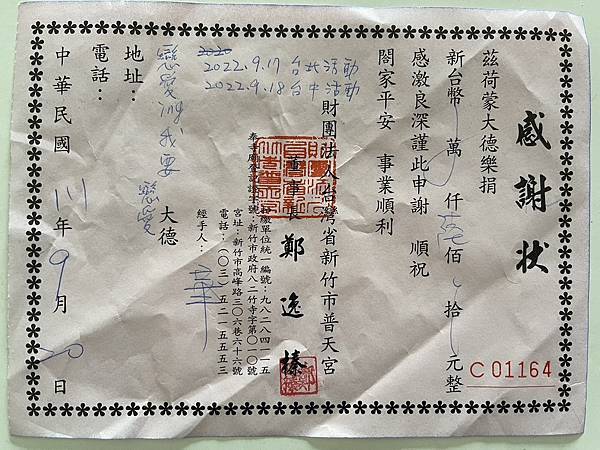 感謝狀
茲荷蒙大德樂捐
新台幣 萬 仟 佰 拾 元整
感激良深謹此申謝 順祝
閤家平安 事業順利
財團法人台灣省新竹市普天宮
董事長 鄭逸榛
扣繳單位統一編號:九八二八四一一五
奉主關登記證字號:新竹市政府八二竹寺字第〇一〇號
宮址:新竹市高峰路三〇六巷六十六號
電話:(〇三)五二一五五五三
經手人: 華
2022.9.17 台北活動
2022.9.18 台中活動
戀愛 我要
戀愛 大德
地址:
電話:
中華民國 111 年 9 月 20 日
C 01164